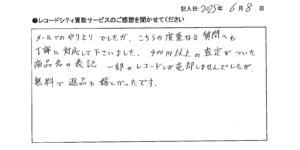 記入日: 2025年 6月 8日
●レコードシティ買取サービスのご感想を聞かせてください
メールでのやりとりでしたが、こちらの度重なる質問へも
丁寧に対応して下さいました。400円以上の査定がついた
商品名の表記 一部のレコードしか売却しませんでしたが、
無料で返品も嬉しかったです。